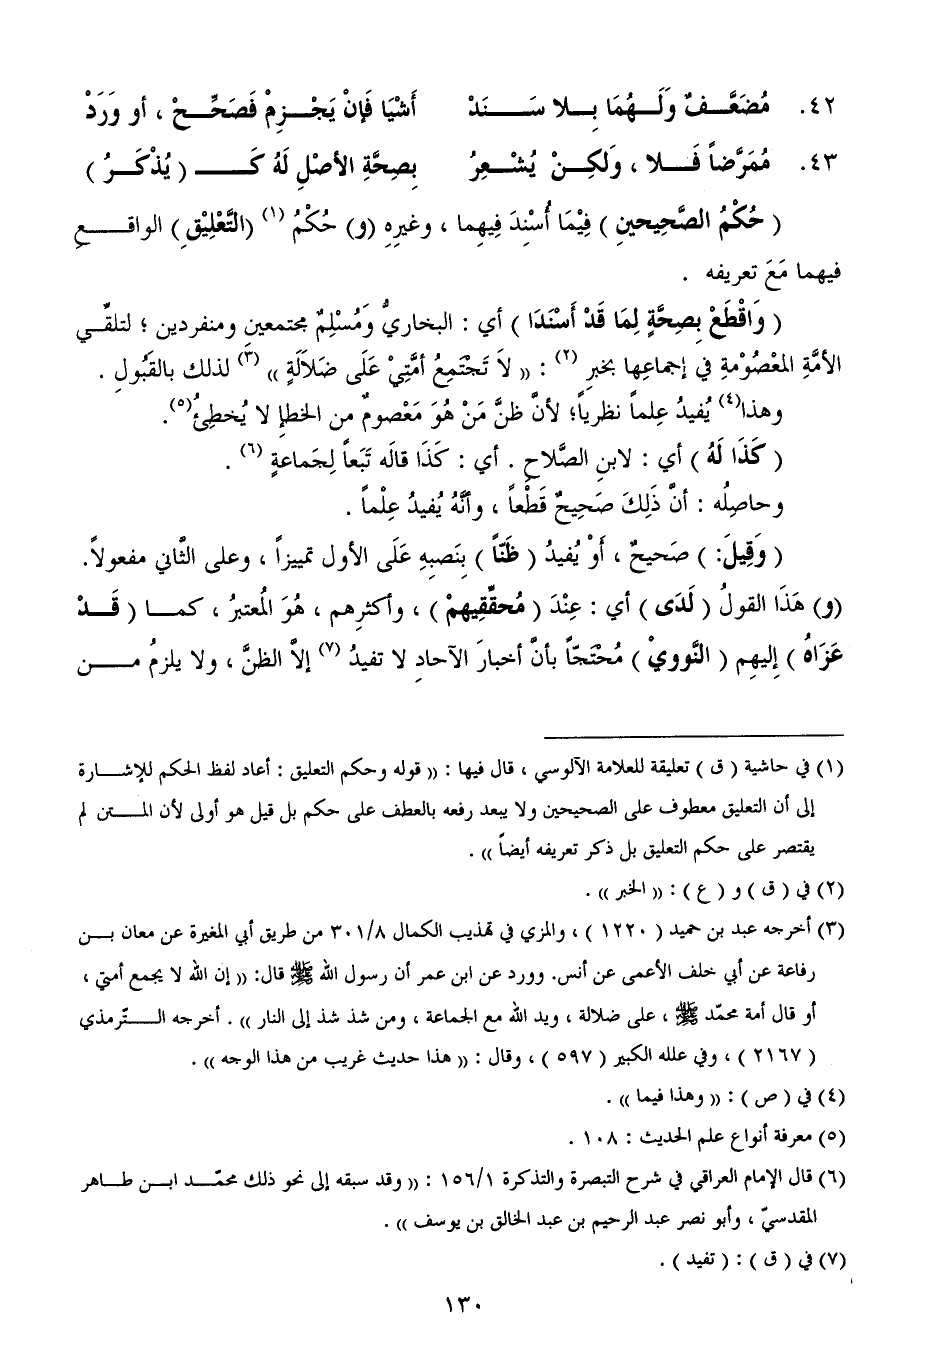 ٤٢. مُضَعَّفٌ وَلَهُمَا بِلا سَنَدْ أَشْيَا فَإِنْ يَجْزِمْ فَصَحِّحْ ، أو وَرَدْ
٤٣. مُمَرَّضاً فَلا ، وَلكِنْ يُشْعِرُ بِصِحَّةِ الأصْلِ لَهُ كَـ ( يُذْكَرُ )
( حُكْمُ الصَّحِيحينِ ) فِيْمَا أُسْنِدَ فِيهِما ، وغيرِهِ (و) حُكْمُ (١) (التَّعْلِيْقِ) الواقعِ
فيهما مَعَ تعريفه .
( وَاقْطَعْ بِصِحَّةٍ لِمَا قَدْ أَسْنَدَا ) أي : البخاريُّ ومُسْلِمٌ مجتمعينِ ومنفردين ؛ لتلقّي
الأمَّةِ المَعْصُوْمةِ في إجماعِها بخبرِ (٢) : (( لاَ تَجْتَمِعُ أُمَّتِيْ عَلَى ضَلاَلَةٍ )) (٣) لذلك بالقَبُولِ .
وهذا(٤) يُفيدُ عِلماً نظرياً؛ لأنَّ ظنَّ مَنْ هُوَ مَعْصومٌ من الخطإِ لا يُخطِئُ(٥).
( كَذَا لَهُ ) أي : لابنِ الصَّلاحِ . أي : كَذَا قالَه تَبَعاً لِجَماعةٍ (٦) .
وحاصِلُه : أنَّ ذَلِكَ صَحِيحٌ قَطْعاً ، وأنَّهُ يُفيدُ عِلْماً .
( وَقِيلَ: ) صَحيحٌ ، أَوْ يُفيدُ ( ظَنّاً ) بِنَصبِهِ عَلَى الأول تمييزاً ، وعلى الثَّاني مفعولاً.
(و) هَذَا القولُ ( لَدَى ) أي : عِنْدَ ( مُحقِّقِيهِمْ ) ، وأكثرِهم ، هُوَ المُعتبرُ ، كما ( قَدْ
عَزَاهُ ) إليهِم ( النَّوويْ ) مُحْتَجّاً بأنَّ أخبارَ الآحادِ لا تفيدُ (٧) إلاَّ الظنَّ ، ولا يلزمُ من
(١) في حاشية ( ق ) تعليقة للعلامة الآلوسي ، قال فيها : (( قوله وحكم التعليق : أعاد لفظ الحكم للإشارة
إلى أن التعليق معطوف على الصحيحين ولا يبعد رفعه بالعطف على حكم بل قيل هو أولى لأن المتن لم
يقتصر على حكم التعليق بل ذكر تعريفه أيضاً )) .
(٢) في ( ق ) و ( ع ) : (( الخبر )) .
(٣) أخرجه عبد بن حميد ( ١٢٢٠ ) ، والمزي في تهذيب الكمال ٣٠١/٨ من طريق أبي المغيرة عن معان بن
رفاعة عن أبي خلف الأعمى عن أنس. وورد عن ابن عمر أن رسول الله ﷺ قال: (( إن الله لا يجمع أمتي ،
أو قال أمة محمّد ﷺ ، على ضلالة ، ويد الله مع الجماعة ، ومن شذ شذ إلى النار )) . أخرجه التّرمذي
( ٢١٦٧ ) ، وفي علله الكبير ( ٥٩٧ ) ، وقال : (( هذا حديث غريب من هذا الوجه )) .
(٤) في ( ص ) : (( وهذا فيما )) .
(٥) معرفة أنواع علم الحديث : ١٠٨ .
(٦) قال الإمام العراقي في شرح التبصرة والتذكرة ١٥٦/١ : (( وقد سبقه إلى نحو ذلك محمّد ابن طاهر
المقدسيّ ، وأبو نصر عبد الرحيم بن عبد الخالق بن يوسف )) .
(٧) في ( ق ) : ( تفيد ) .
١٣٠